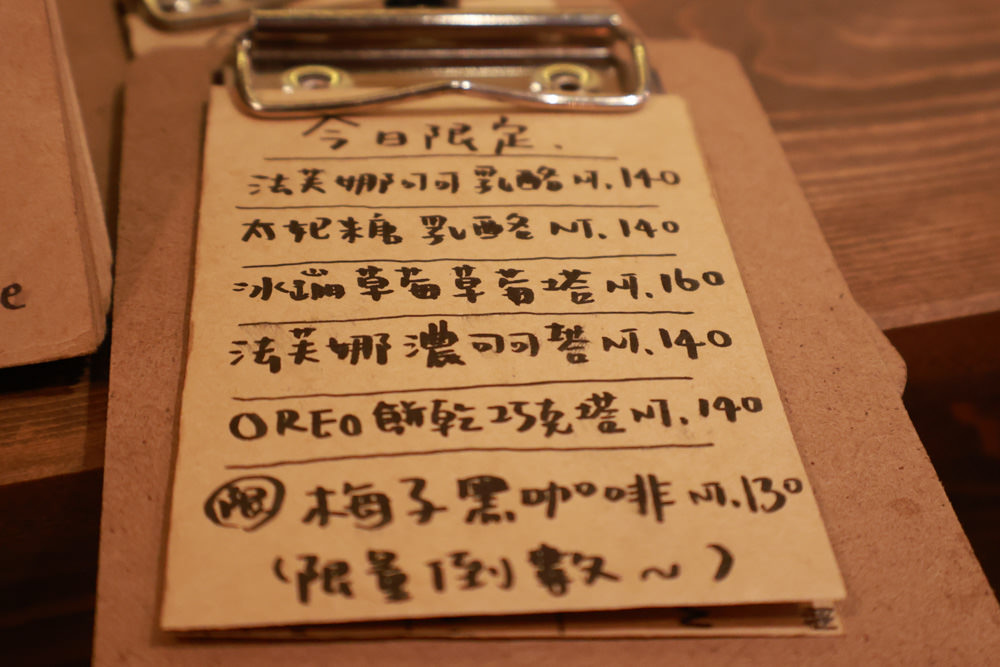 今日限定.
法芙娜可可乳酪 NT.140
太妃糖乳酪 NT.140
冰蹦草莓草莓塔 NT.160
法芙娜濃可可塔 NT.140
OREO餅乾巧克塔 NT.140
限 梅子黑咖啡 NT.130
(限量倒數~)
e